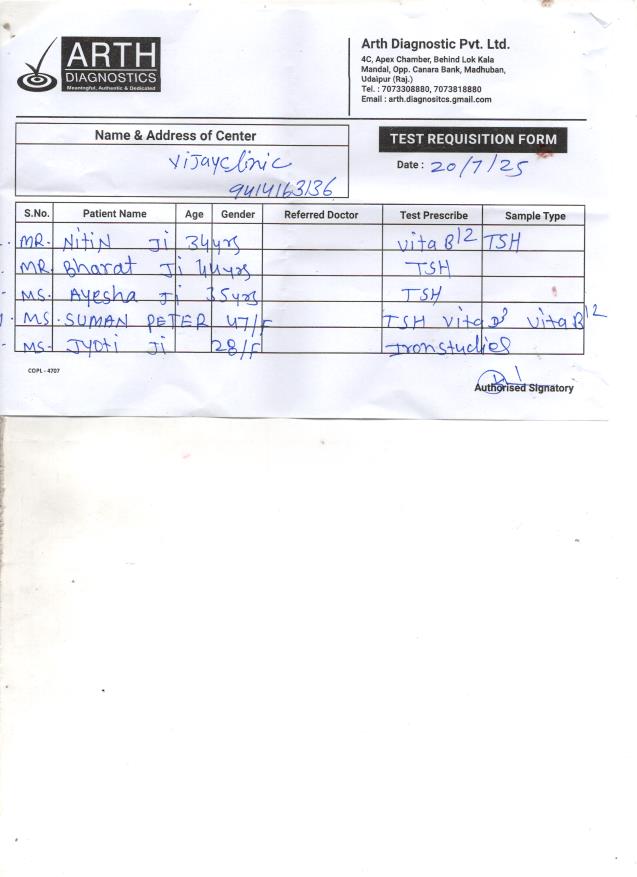 ARTH
DIAGNOSTICS
Meaningful, Authentic & Dedicated
Arth Diagnostic Pvt. Ltd.
4C, Apex Chamber, Behind Lok Kala
Mandal, Opp. Canara Bank, Madhuban,
Udaipur (Raj.)
Tel. : 7073308880, 7073818880
Email : arth.diagnositcs.gmail.com
Name & Address of Center
Vijayclinic
9414163136
TEST REQUISITION FORM
Date : 20/7/25
S.No. Patient Name Age Gender Referred Doctor Test Prescribe Sample Type
MR. Nitin Ji 34yrs Vita B12 TSH
MR. Bharat Ji 44yrs TSH
MS. Ayesha Ji 35yrs TSH
MS. SUMAN PETER 47/F TSH Vita D3 Vita B12
MS. Jyoti Ji 28/F Iron studies
COPL - 4707
Authorised Signatory